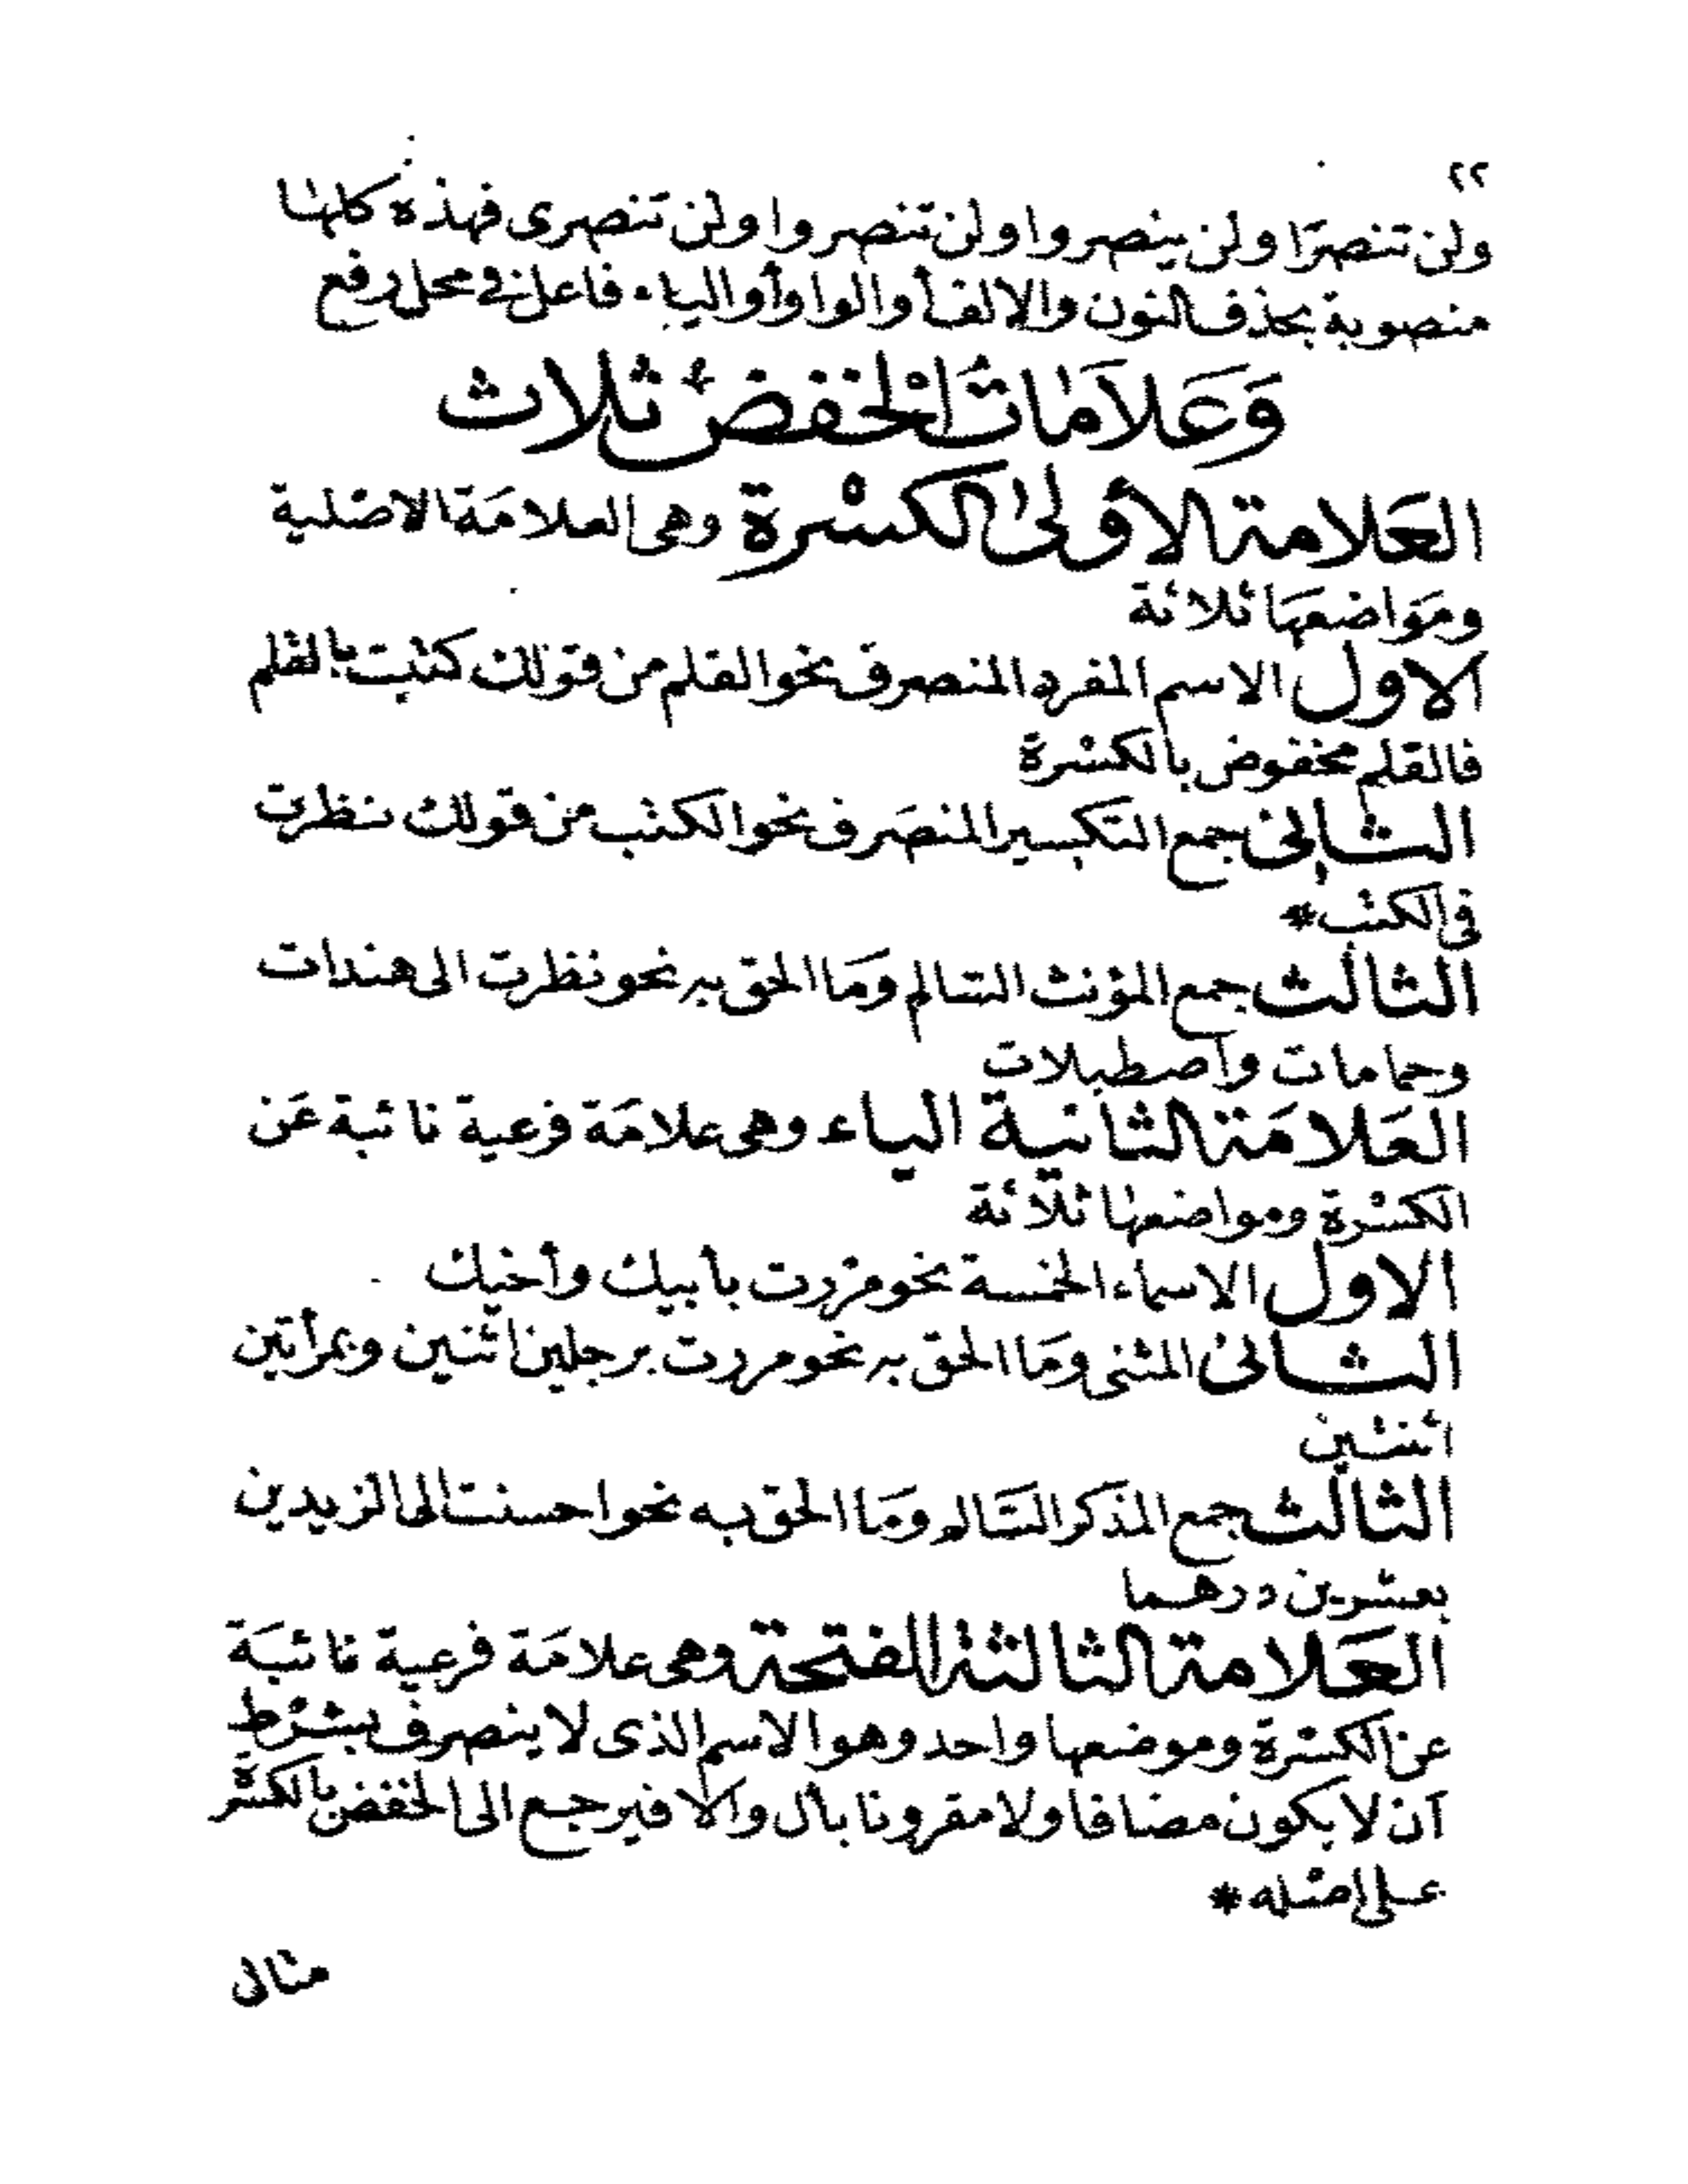 ٢٢
ولن تنصرا ولن ينصروا ولن تنصروا ولن تنصرى فهذه كلها
منصوبة بحذف النون والالف أو الواو أو الياء فاعل فى محل رفع
وَعَلَامَاتُ الْخفضُ ثلاث
العَلامة الأولى الكسْرة وهى العلامَة الاصْلية
ومَواضعهَا ثلاثة
الاول الاسم المفرد المنصرف نحو القلم من قولك كتبت بالقلم
فالقلم مخفوض بالكسْرة
الثانى جمع التكسير المنصَرف نحو الكتب من قولك نظرت
فى الكتب *
الثالث جمع المؤنث السَالم ومَا الحق به نحو نظرت الى هندات
وحمامات واصطبلات
العَلامَة الثانية الياء وهى علامَة فرعية نائبة عَن
الكسْرة ومواضعها ثلاثة
الاول الاسماء الخمسة نحو مررت بأبيك وأخيك
الثانى المثنى ومَا الحق به نحو مررت برجلين اثنين وبمرأتين
اثنتين
الثالث جمع المذكر السَالم ومَا الحق به نحو احسنت الى الزيدين
بعشرين درهما
العَلامة الثالثة الفتحة وهى علامَة فرعية نائبَة
عن الكسْرة وموضعها واحد وهو الاسم الذى لا ينصرف بشرْط
أن لا يكون مضافا ولا مقرونا بأل والا فيرجع الى الخفض بالكسْرة
على اصْله *
مثال